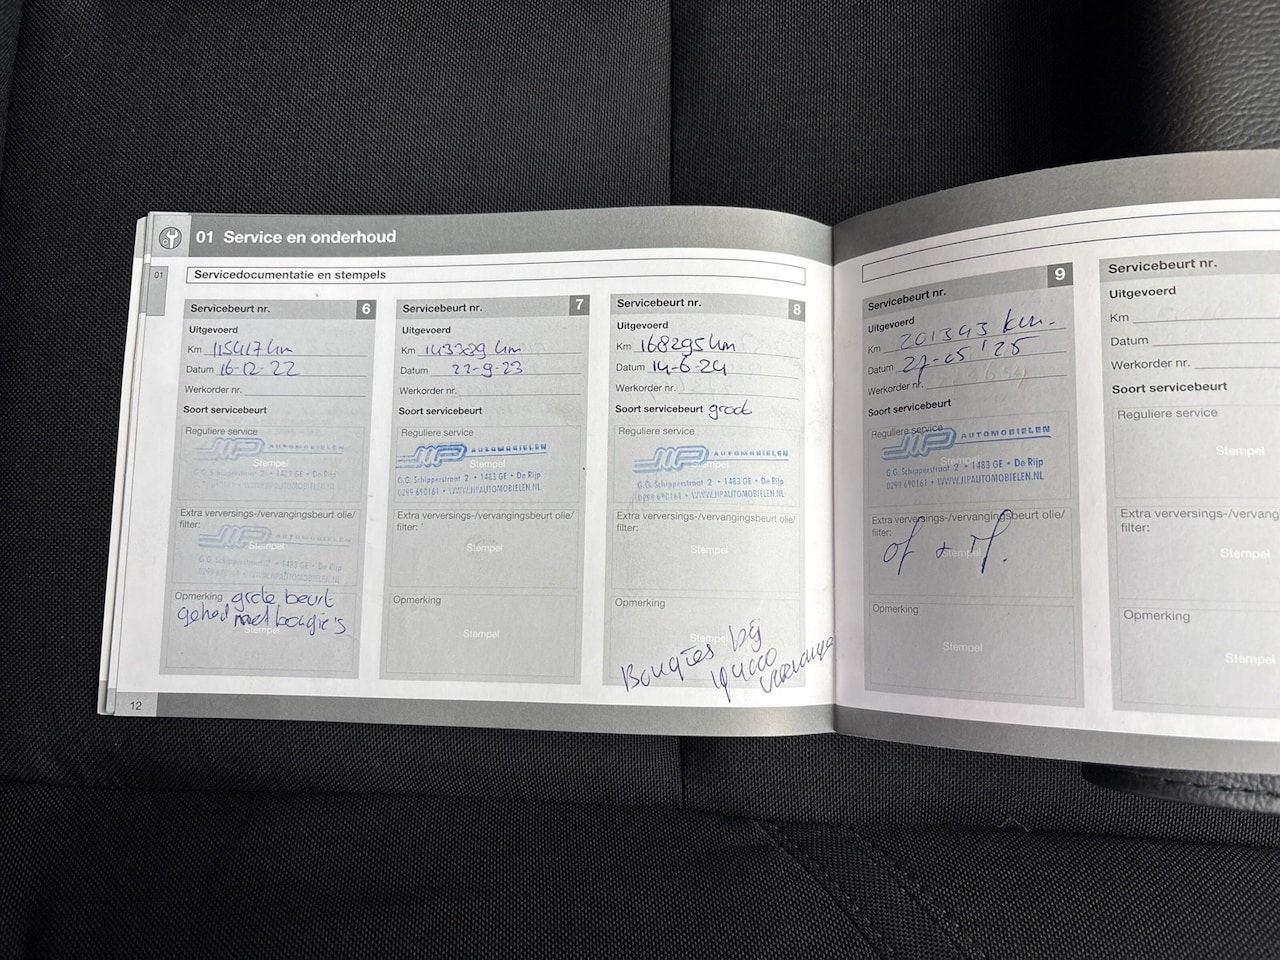 01 Service en onderhoud
01
Servicedocumentatie en stempels
Servicebeurt nr. 6
Uitgevoerd
Km 115417 km
Datum 16-12-22
Werkorder nr.
Soort servicebeurt
Reguliere service
JIP AUTOMOBIELEN
Stempel
G.G. Schipperstraat 2 • 1483 GE • De Rijp
Extra verversings-/vervangingsbeurt olie/
filter:
JIP AUTOMOBIELEN
Stempel
G.G. Schipperstraat 2 • 1483 GE • De Rijp
0299 690161 • WWW.JIPAUTOMOBIELEN.NL
Opmerking grote beurt
gehad met bougie's
Stempel
12
Servicebeurt nr. 7
Uitgevoerd
Km 143389 km
Datum 22-9-23
Werkorder nr.
Soort servicebeurt
Reguliere service
JIP AUTOMOBIELEN
Stempel
G.G. Schipperstraat 2 • 1483 GE • De Rijp
0299 690161 • WWW.JIPAUTOMOBIELEN.NL
Extra verversings-/vervangingsbeurt olie/
filter:
Stempel
Opmerking
Stempel
Servicebeurt nr. 8
Uitgevoerd
Km 168295 km
Datum 14-6-24
Werkorder nr.
Soort servicebeurt groot
Reguliere service
JIP AUTOMOBIELEN
Stempel
G.G. Schipperstraat 2 • 1483 GE • De Rijp
0299 690161 • WWW.JIPAUTOMOBIELEN.NL
Extra verversings-/vervangingsbeurt olie/
filter:
Stempel
Opmerking
Stempel
Bougies bij
Servicebeurt nr. 9
Uitgevoerd
Km 201343 km.
Datum 27-05'25
Werkorder nr.
Soort servicebeurt
Reguliere service
JIP AUTOMOBIELEN
Stempel
G.G. Schipperstraat 2 • 1483 GE • De Rijp
0299 690161 • WWW.JIPAUTOMOBIELEN.NL
Extra verversings-/vervangingsbeurt olie/
filter:
Stempel
Opmerking
Stempel
Servicebeurt nr.
Uitgevoerd
Km
Datum
Werkorder nr.
Soort servicebeurt
Reguliere service
Stempel
Extra verversings-/vervang
filter:
Stempel
Opmerking
Stempel